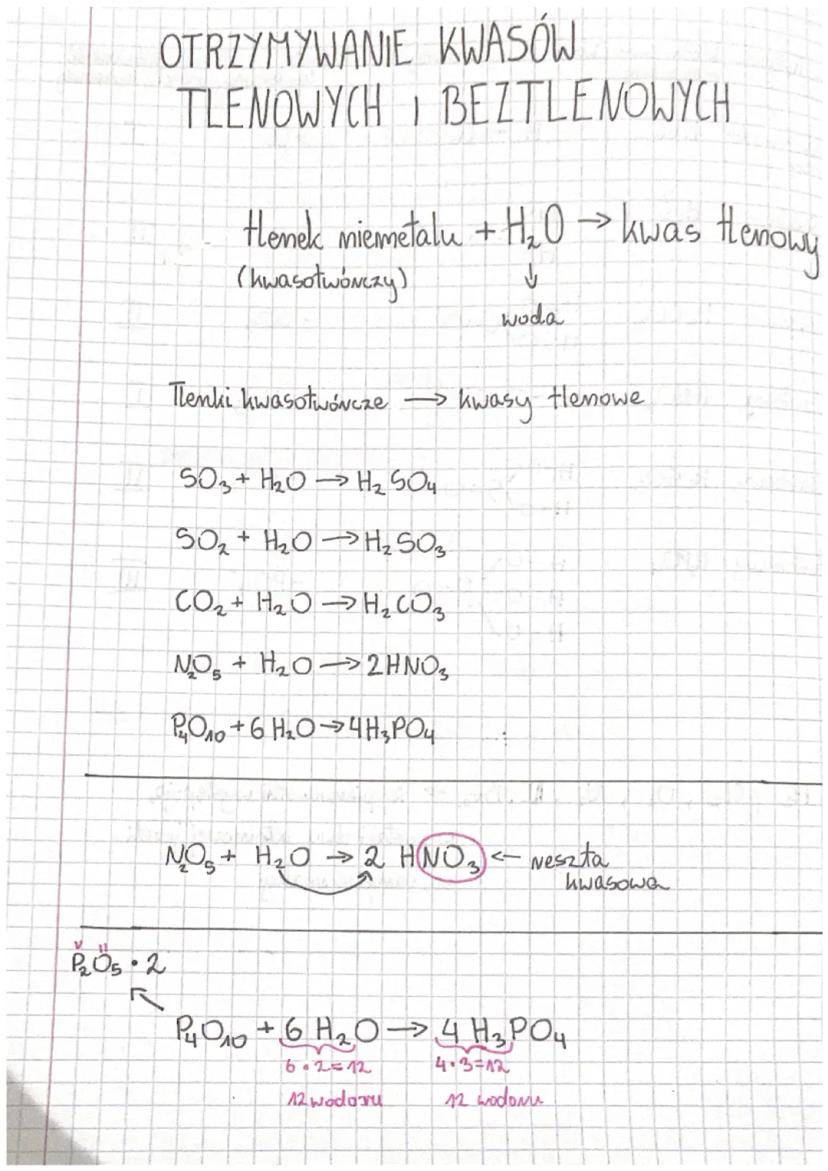 OTRZYMYWANIE KWASÓW
TLENOWYCH I BEZTLENOWYCH
tlenek niemetalu + H₂O → kwas tlenowy
(kwasotwórczy)
↓
woda
Tlenki kwasotwórcze → kwasy tlenowe
SO₃ + H₂O → H₂SO₄
SO₂ + H₂O → H₂SO₃
CO₂ + H₂O → H₂CO₃
N₂O₅ + H₂O → 2HNO₃
P₄O₁₀ + 6 H₂O → 4H₃PO₄
N₂O₅ + H₂O → 2 HNO₃ ← reszta
kwasowa
V II
P₂O₅ • 2
P₄O₁₀ + 6 H₂O → 4 H₃PO₄
6 • 2 = 12 4 • 3 = 12
12 wodoru 12 wodoru